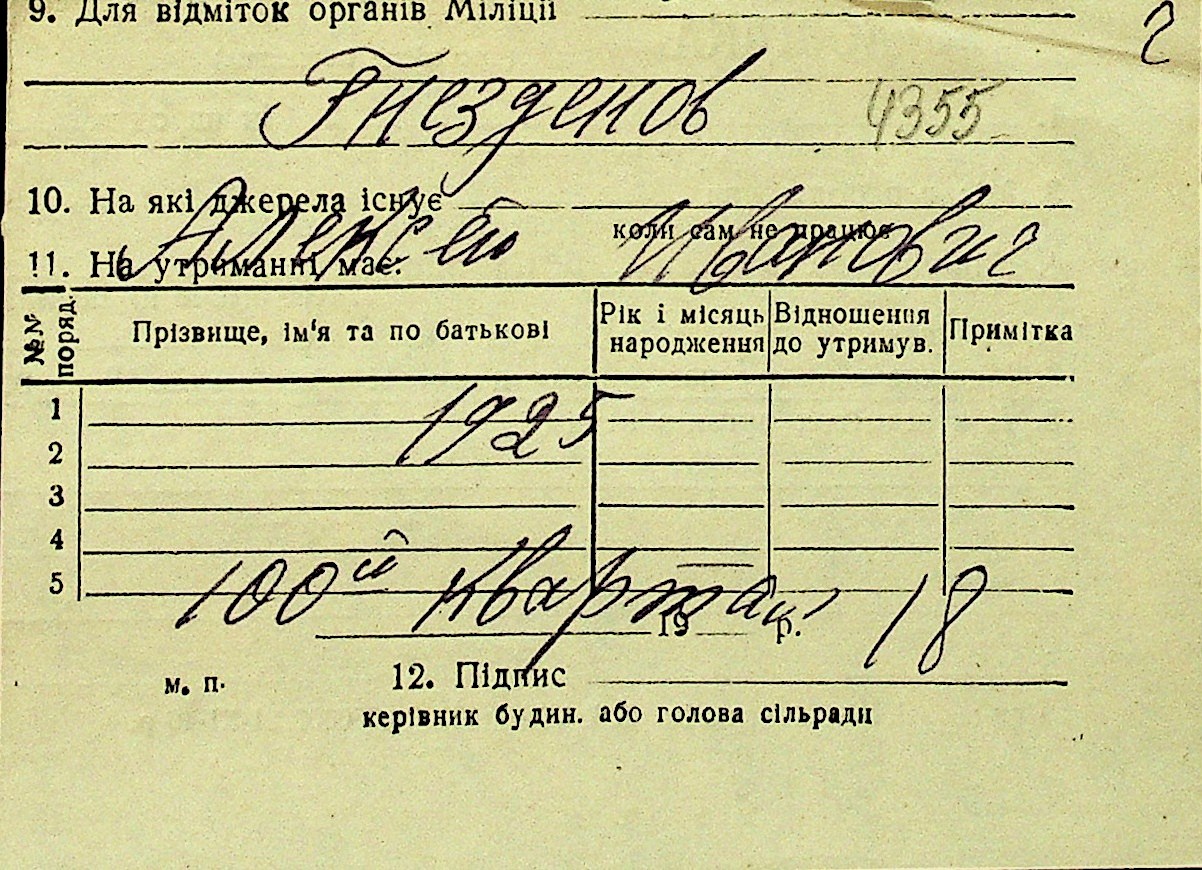 9. Для відміток органів Міліції
г
Гнезденов 4355
10. На які джерела існує
коли сам не працює
Алексей Иванович
11. На утриманні має:
№№ поряд. Прізвище, ім'я та по батькові Рік і місяць народження Відношення до утримув. Примітка
1 1925
2
3
4
5
100й квартал 18
19 р.
м. п. 12. Підпис
керівник будин. або голова сільради